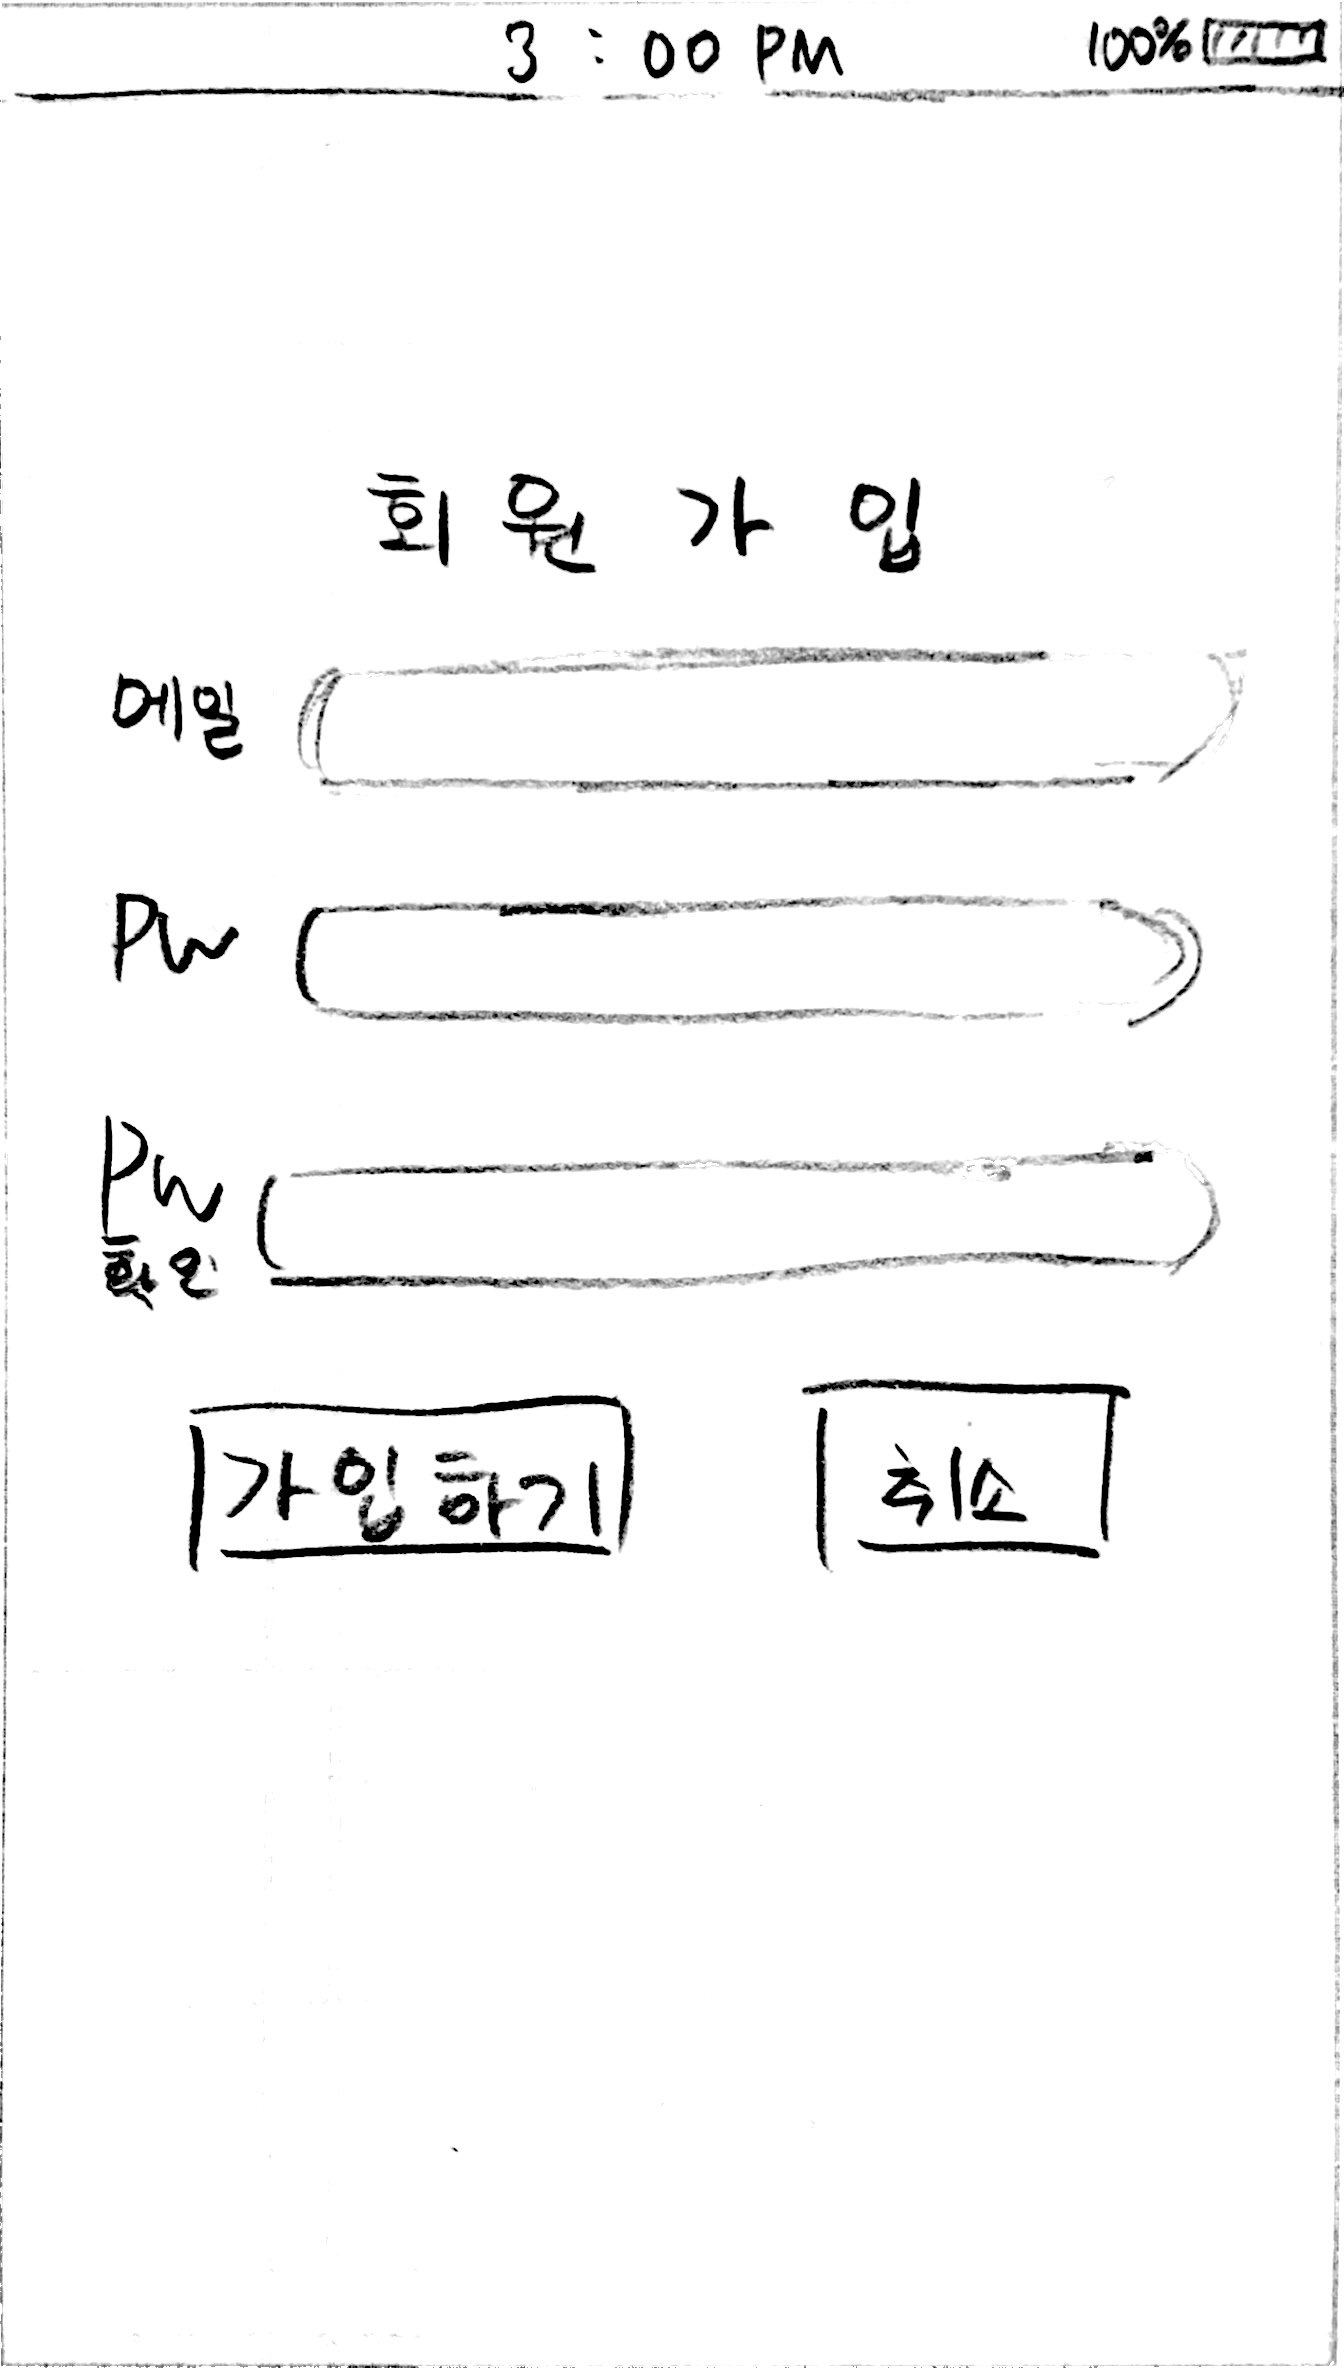 3 : 00 PM 100%
회원가입
메일
PW
PW
확인
가입하기 취소